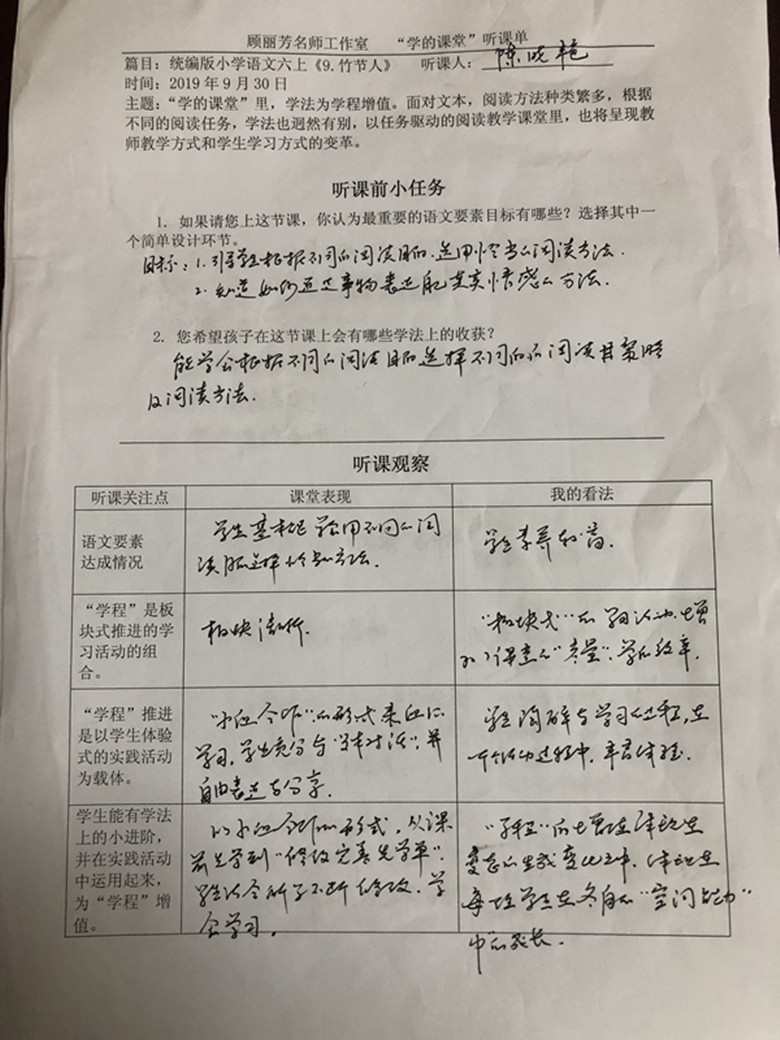 顾丽芳名师工作室 “学的课堂”听课单
篇目：统编版小学语文六上《9.竹节人》 听课人：陈晓艳
时间：2019年9月30日
主题：“学的课堂”里，学法为学程增值。面对文本，阅读方法种类繁多，根据
不同的阅读任务，学法也迥然有别，以任务驱动的阅读教学课堂里，也将呈现教
师教学方式和学生学习方式的变革。
听课前小任务
1. 如果请您上这节课，你认为最重要的语文要素目标有哪些？选择其中一
个简单设计环节。
目标：1.引导学生根据不同的阅读目的，选用恰当的阅读方法.
2.知道如何通过事物表达真实情感的方法.
2. 您希望孩子在这节课上会有哪些学法上的收获？
能学会根据不同的阅读目的选择不同的阅读策略
及阅读方法.
听课观察
听课关注点 课堂表现 我的看法
语文要素
达成情况
学生基本能用不同的阅
读选择恰当方法.
学生素养
“学程”是板
块式推进的学
习活动的组
合。
板块清晰.
“板块式”的学习活动,增
加了课堂的“容量”,学的效率.
“学程”推进
是以学生体验
式的实践活动
为载体。
“小组合作”的形式来进行
学习,学生充分与“文本对话”,并
自由表达与分享.
学生陶醉与学习的过程,在
一个个活动过程中,丰富体验.
学生能有学法
上的小进阶，
并在实践活动
中运用起来，
为“学程”增
值。
以小组合作的形式,从课
前先学到“修改完善先学单”.
学生结合所学不断修改,学
会学习.
“学程”的增值体现在
变态的生成变化之中,体现在
每位学生在各自的“空间”
中的成长.